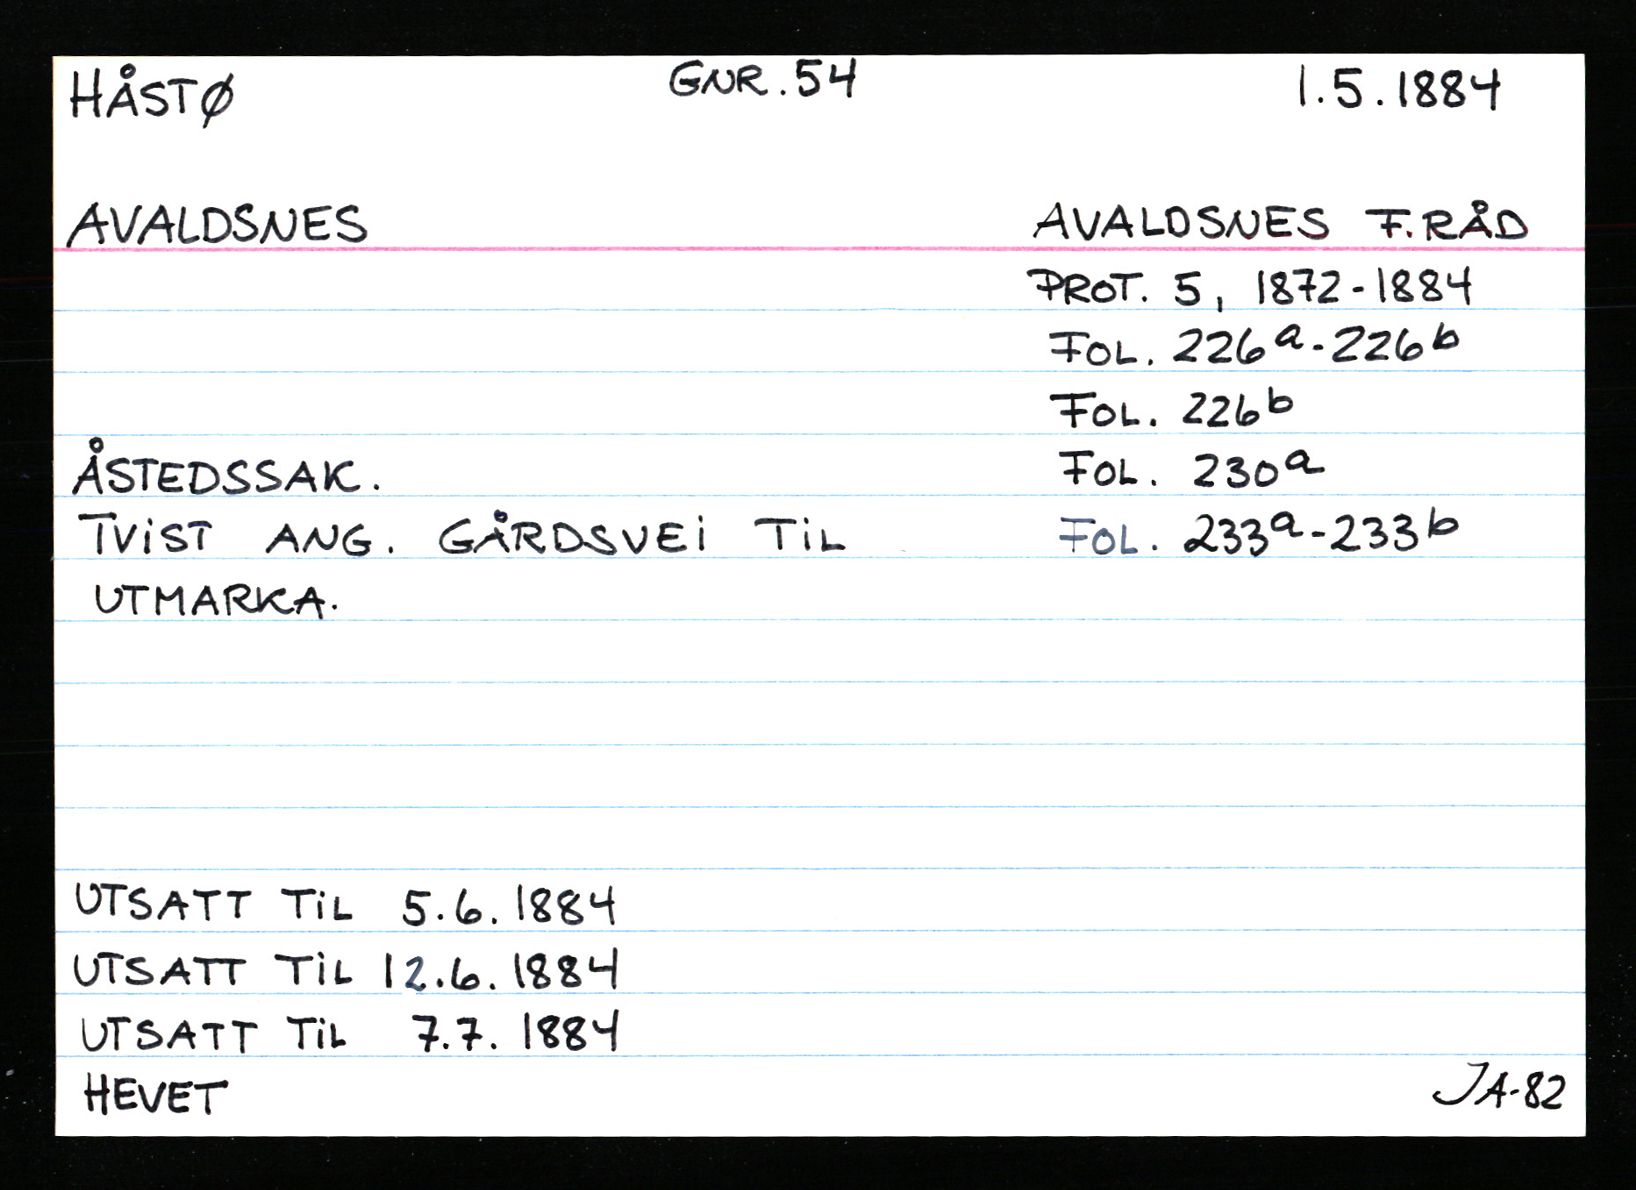 HÅSTØ GNR. 54 1.5.1884
AVALDSNES AVALDSNES F.RÅD
PROT. 5, 1872-1884
FOL. 226a-226b
FOL. 226b
ÅSTEDSSAK. FOL. 230a
TVIST ANG. GÅRDSVEI TIL FOL. 233a-233b
UTMARKA.
UTSATT TIL 5.6.1884
UTSATT TIL 12.6.1884
UTSATT TIL 7.7.1884
HEVET JA-82